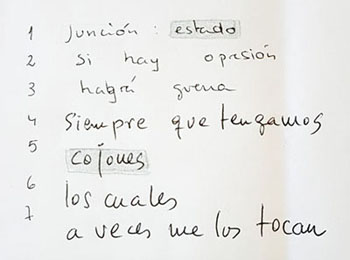 1 Junción: estado
2 si hay opresión
3 habrá guerra
4 Siempre que tengamos
5 cojones
6 los cuales
7 a veces me los tocan